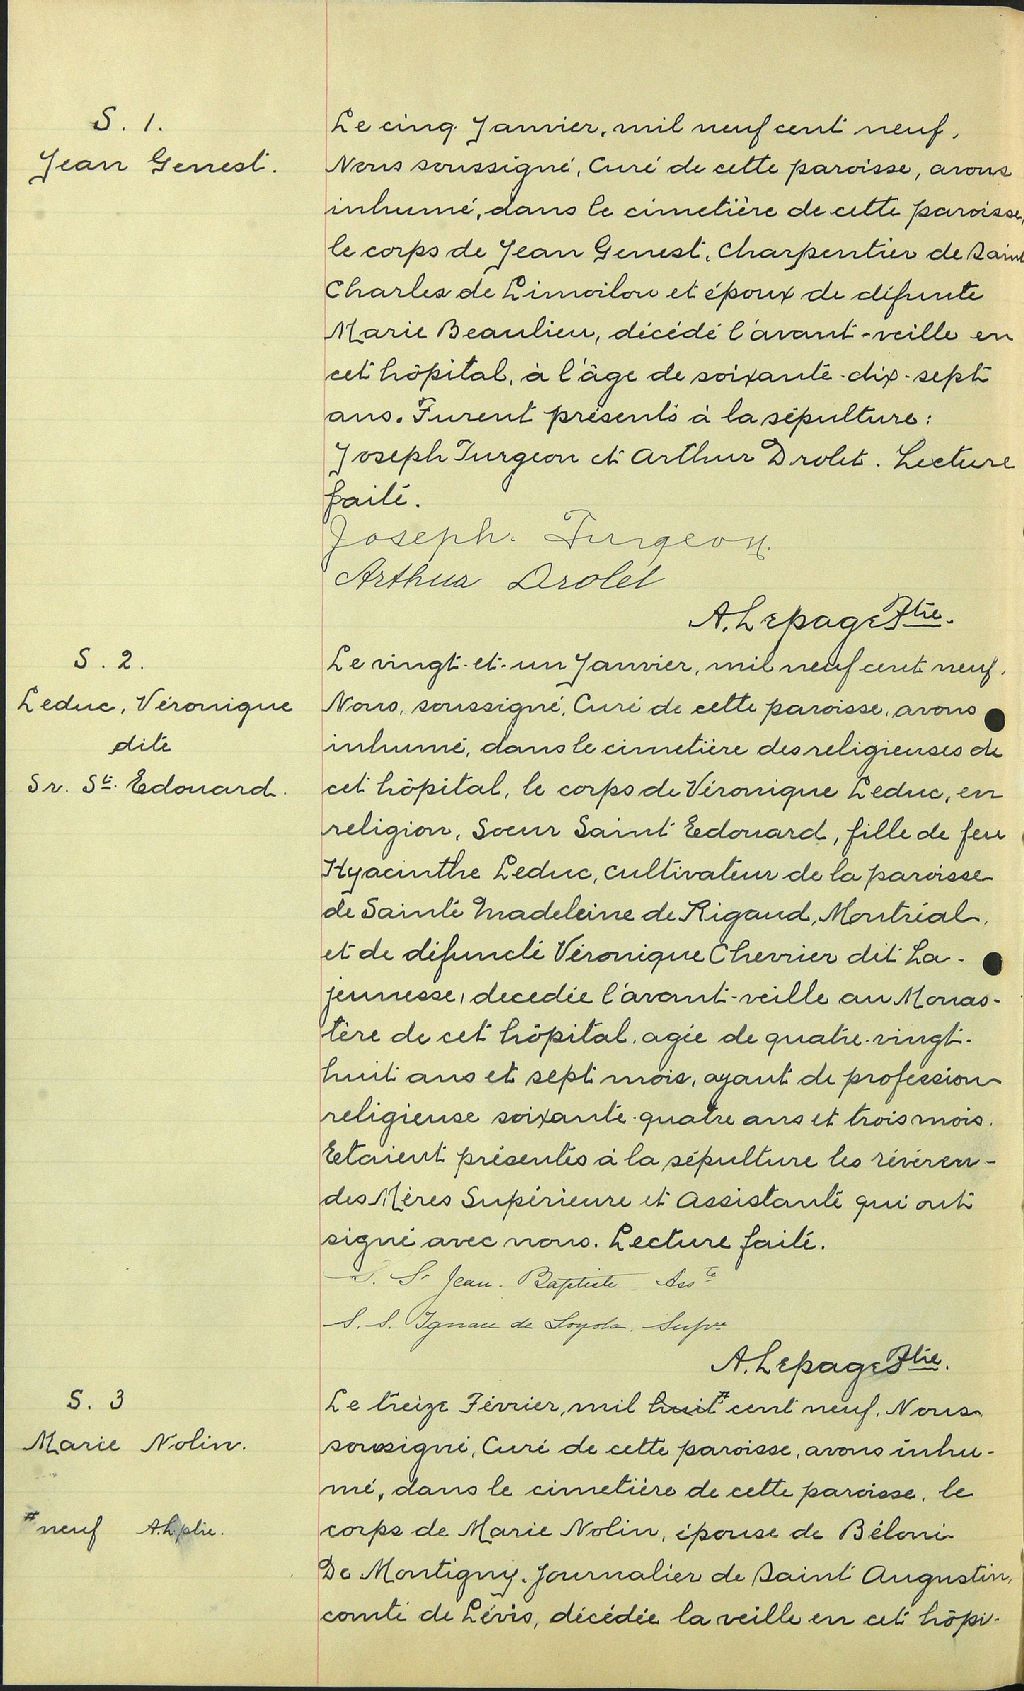 S. 1.
Jean Genest.
Le cinq Janvier, mil neuf cent neuf,
Nous soussigné, Curé de cette paroisse, avons
inhumé, dans le cimetière de cette paroisse,
le corps de Jean Genest, Charpentier de Saint
Charles de Limoilou et époux de défunte
Marie Beaulieu, décédé l'avant-veille en
cet hôpital, à l'âge de soixante-dix-sept
ans. Furent présents à la sépulture:
Joseph Turgeon et Arthur Drolet. Lecture
faite.
Joseph. Turgeon.
Arthur Drolet
A. Lepage Ptre.
S. 2.
Leduc, Véronique
dite
Sr. St. Edouard.
Le vingt-et-un Janvier, mil neuf cent neuf.
Nous, soussigné, Curé de cette paroisse, avons
inhumé, dans le cimetière des religieuses de
cet hôpital, le corps de Véronique Leduc, en
religion, Soeur Saint Edouard, fille de feu
Hyacinthe Leduc, cultivateur de la paroisse
de Sainte Madeleine de Rigaud, Montréal,
et de défuncte Véronique Chevrier dit La-
jeunesse, decedée l'avant-veille au Monas-
tère de cet hôpital, agée de quatre-vingt-
huit ans et sept mois, ayant de profession
religieuse soixante-quatre ans et trois mois.
Etaient présentes à la sépulture les révéren-
des Mères Supérieure et Assistante qui ont
signé avec nous. Lecture faite.
S. St Jean-Baptiste Asste
S. S. Ignace de Loyola. Supre
A. Lepage Ptre.
S. 3
Marie Nolin.
#neuf A.L. ptre.
Le treize Février, mil huit# cent neuf, Nous
soussigné, Curé de cette paroisse, avons inhu-
mé, dans le cimetière de cette paroisse, le
corps de Marie Nolin, épouse de Béloni
De Montigny, Journalier de Saint Augustin,
comté de Lévis, décédée la veille en cet hôpi-